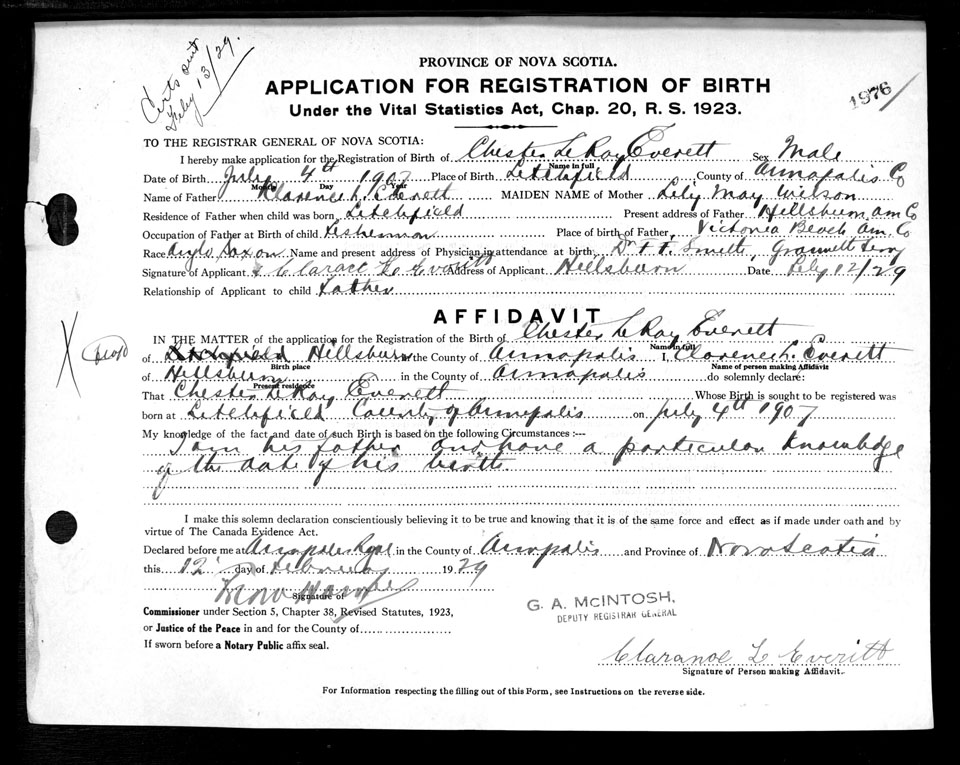 Certs sent
Feby 13/29.
PROVINCE OF NOVA SCOTIA.
APPLICATION FOR REGISTRATION OF BIRTH
Under the Vital Statistics Act, Chap. 20, R. S. 1923.
1976
TO THE REGISTRAR GENERAL OF NOVA SCOTIA:
I hereby make application for the Registration of Birth of Chester Le Roy Everett Sex Male
Name in full
Date of Birth July 4th 1907 Place of Birth Litchfield County of Annapolis Co
Month Day Year
Name of Father Clarence L. Everett MAIDEN NAME of Mother Lily May Wilson
Residence of Father when child was born Litchfield Present address of Father Hillsburn Ann Co
Occupation of Father at Birth of child Fisherman Place of birth of Father, Victoria Beach Ann. Co
Race Anglo Saxon Name and present address of Physician in attendance at birth, Dr Smith, Granville Ferry
Signature of Applicant x Clarace L Everitt Address of Applicant Hillsburn Date Feby 12/29
Relationship of Applicant to child Father
AFFIDAVIT
IN THE MATTER of the application for the Registration of the Birth of Chester Le Roy Everett
Name in full
X
of Litchfield Hillsburn in the County of Annapolis I, Clarence L. Everett
Birth place Name of person making Affidavit
of Hillsburn in the County of Annapolis do solemnly declare:
Present residence
That Chester Le Roy Everett Whose Birth is sought to be registered was
born at Litchfield County of Annapolis on July 4th 1907
My knowledge of the fact and date of such Birth is based on the following Circumstances :—
I am his father and have a particular knowledge
of the date of his birth.
I make this solemn declaration conscientiously believing it to be true and knowing that it is of the same force and effect as if made under oath and by
virtue of The Canada Evidence Act.
Declared before me at Annapolis Royal in the County of Annapolis and Province of Nova Scotia
this 12' day of February 1929
Signature of
Commissioner under Section 5, Chapter 38, Revised Statutes, 1923,
or Justice of the Peace in and for the County of
If sworn before a Notary Public affix seal.
G. A. McINTOSH,
DEPUTY REGISTRAR GENERAL
Clarance L Everitt
Signature of Person making Affidavit.
For Information respecting the filling out of this Form, see Instructions on the reverse side.